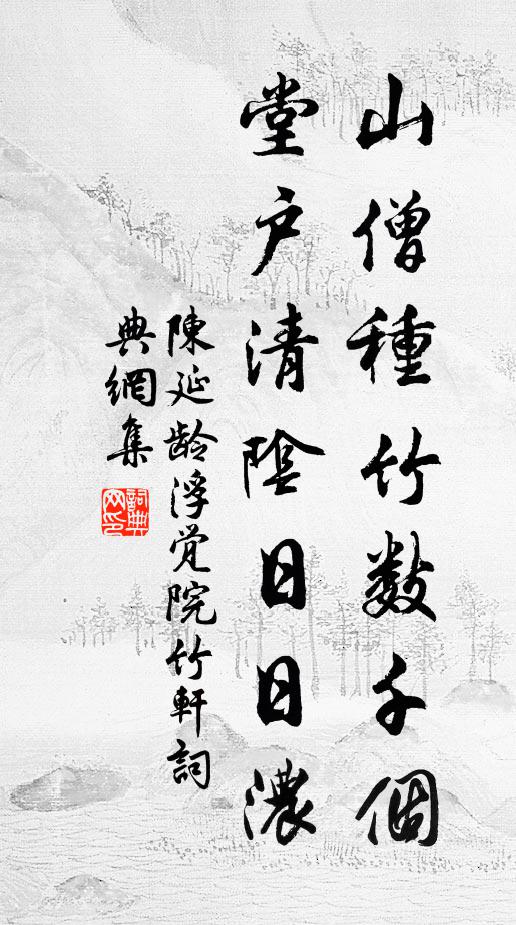 山僧種竹数千個
堂户清陰日日濃
陳延龄淨觉院竹軒詞
典網集
詞典
网印